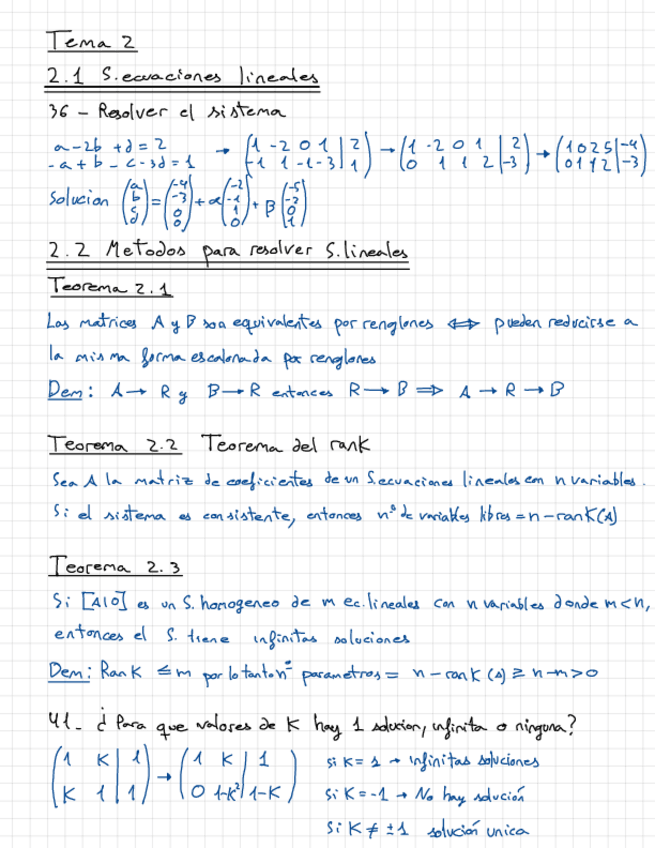 Tema 2
2.1 S.ecuaciones lineales
36 - Resolver el sistema
a-2b +d=2 → (1 -2 0 1 | 2) → (1 -2 0 1 | 2) → (1 0 2 5 | -4)
-a+b-c-3d=1 (-1 1 -1 -3 | 1) (0 1 1 2 | -3) (0 1 1 2 | -3)
Solucion (a b c d) = (-4 -3 0 0) + α(-2 -1 1 0) + β(-5 -2 0 1)
2.2 Metodos para resolver S.lineales
Teorema 2.1
Las matrices A y B son equivalentes por renglones ⟺ pueden reducirse a
la misma forma escalonada por renglones
Dem: A→ R y B→R entonces R→B ⟹ A→R→B
Teorema 2.2 Teorema del rank
Sea A la matriz de coeficientes de un S.ecuaciones lineales con n variables.
Si el sistema es consistente, entonces nº de variables libres = n-rank(A)
Teorema 2.3
Si [A|0] es un S. homogeneo de m ec.lineales con n variables donde m<n,
entonces el S. tiene infinitas soluciones
Dem: Rank ≤m por lo tanto nº parametros = n-rank (A) ≥ n-m>0
41.- ¿Para que valores de K hay 1 solucion, infinita o ninguna?
(1 K | 1) → (1 K | 1) si K= 1 → infinitas soluciones
(K 1 | 1) (0 1-K² | 1-K) si K=-1 → No hay solución
si K ≠ ±1 solución unica